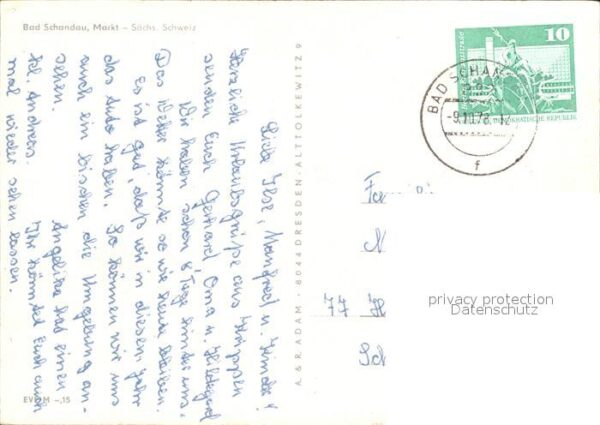 Bad Schandau, Markt – Sächs. Schweiz
Liebe Ilse, Manfred u. Kinder!
Herzliche Urlaubsgrüße aus Krippen
senden Euch Gerhard, Oma u. Hildegard
Wir haben schon 8 Tage hinter uns,
Das Wetter könnte so wie heute bleiben.
Es ist gut, daß wir in diesem Jahr
das Auto haben. So können wir uns
auch ein bischen die Umgebung an-
sehen. Angelika hat einen
Andreas. Ihr könntet Euch auch
mal wieder sehen lassen.
EVP M –,15
A. & R. ADAM · 8044 DRESDEN - ALTTOLKEWITZ 9
10
DEMOKRATISCHE REPUBLIK
BAD SCHAN
-9.10.78
f
Fa
N
77 H
Sch
privacy protection
Datenschutz